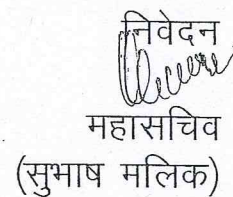 निवेदन
महासचिव
(सुभाष मलिक)